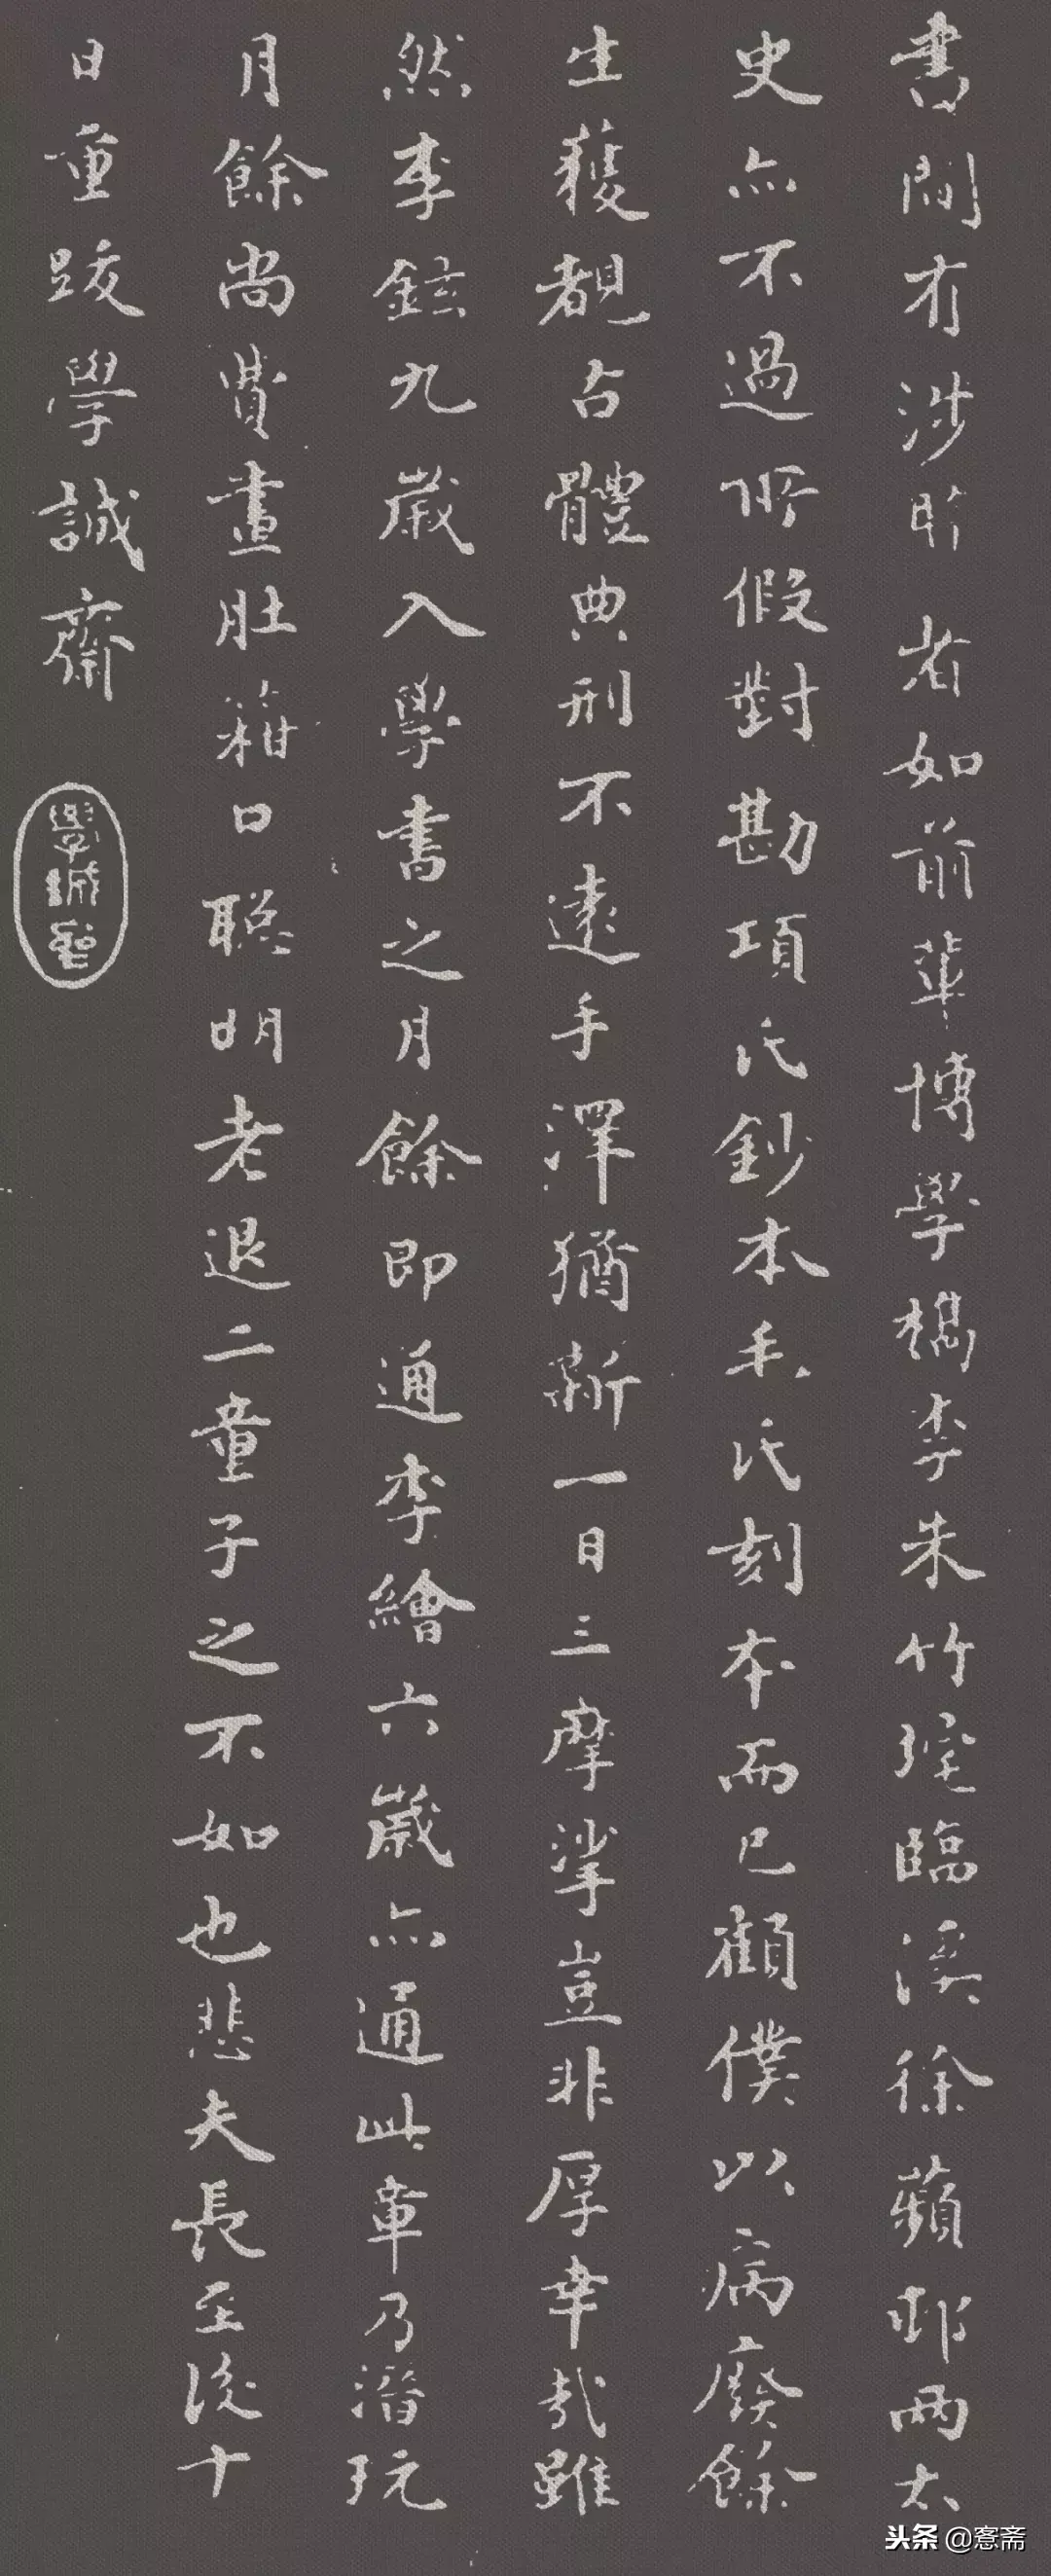 書間有涉昕者如前輩博學檇李朱竹垞臨溪徐蘋邨兩太
史亦不過所假對勘項氏鈔本毛氏刻本而已顧僕以病廢餘
生獲覩古體典刑不遠手澤猶新一日三摩挲豈非厚幸哉雖
然李鉉九歲入學書之月餘即通李繪六歲亦通此章乃潛玩
月餘尚費畫肚籍口聰明老退二童子之不如也悲夫長至後十
日重跋學誠齋
學誠
头条 @愙斋